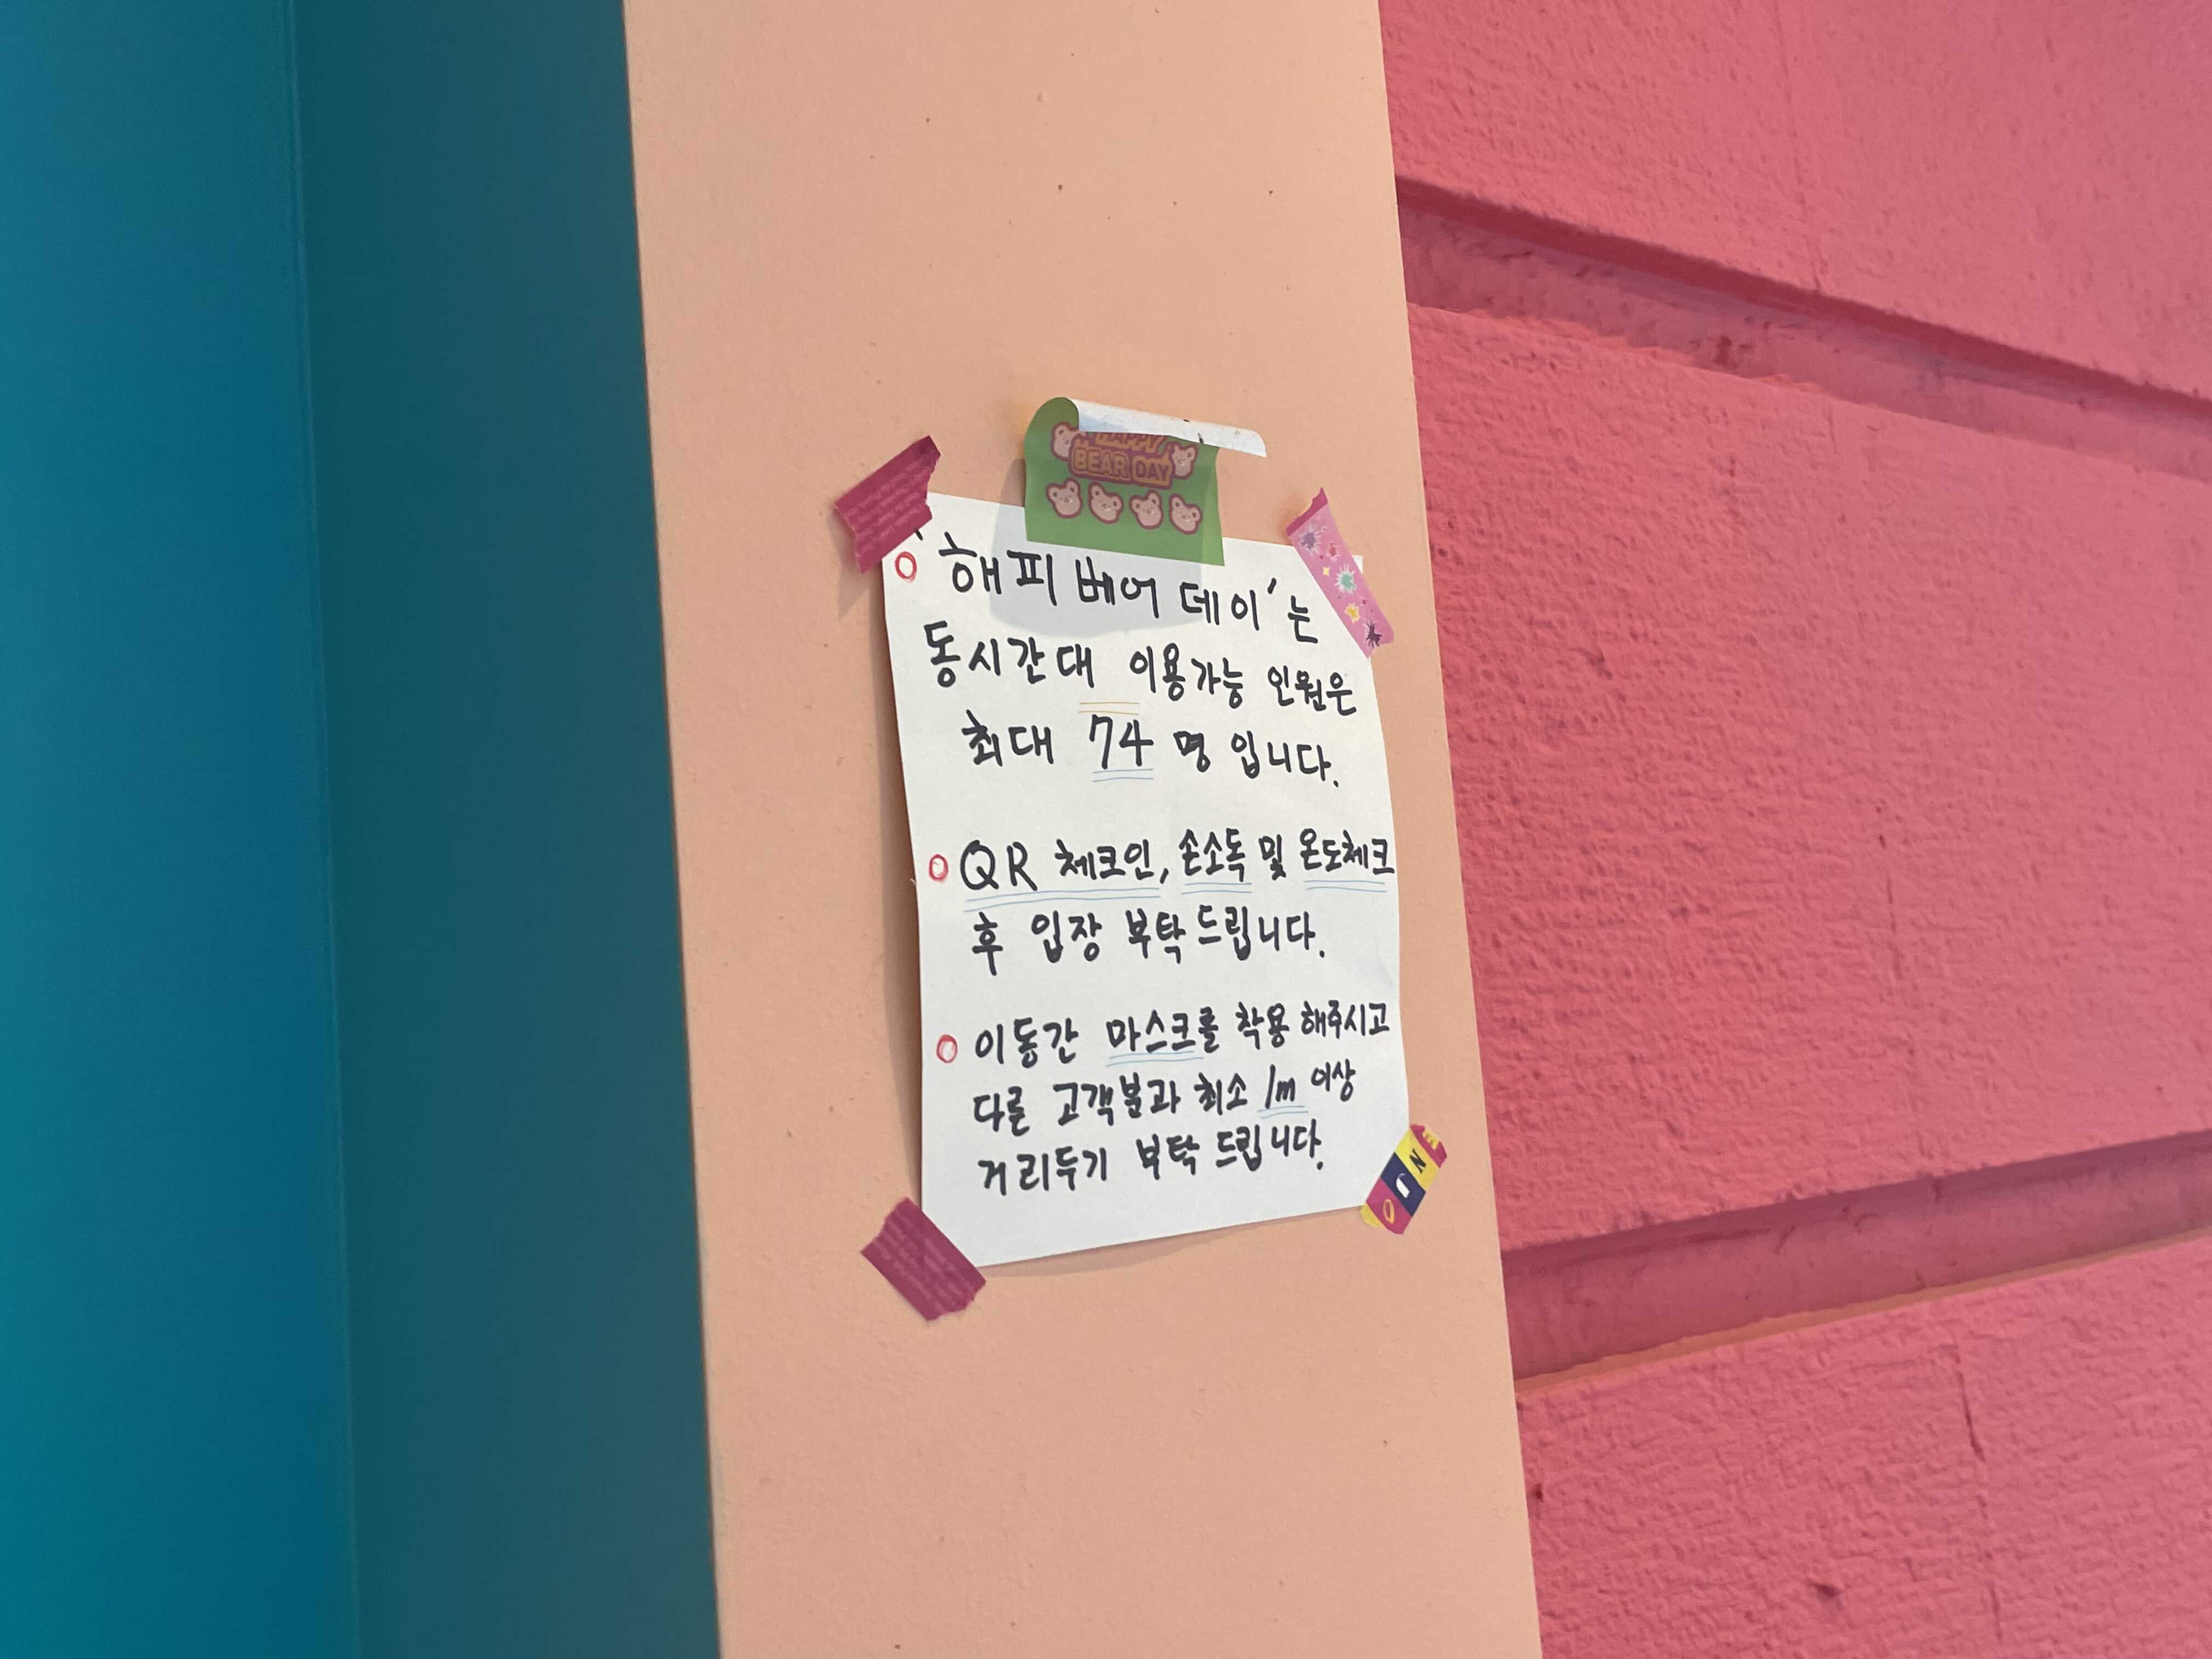 HAPPY
BEAR DAY
'해피 베어 데이'는
동시간대 이용가능 인원은
최대 74 명 입니다.
QR 체크인, 손소독 및 온도체크
후 입장 부탁드립니다.
이동간 마스크를 착용해주시고
다른 고객분과 최소 1m 이상
거리두기 부탁 드립니다.
JUNE